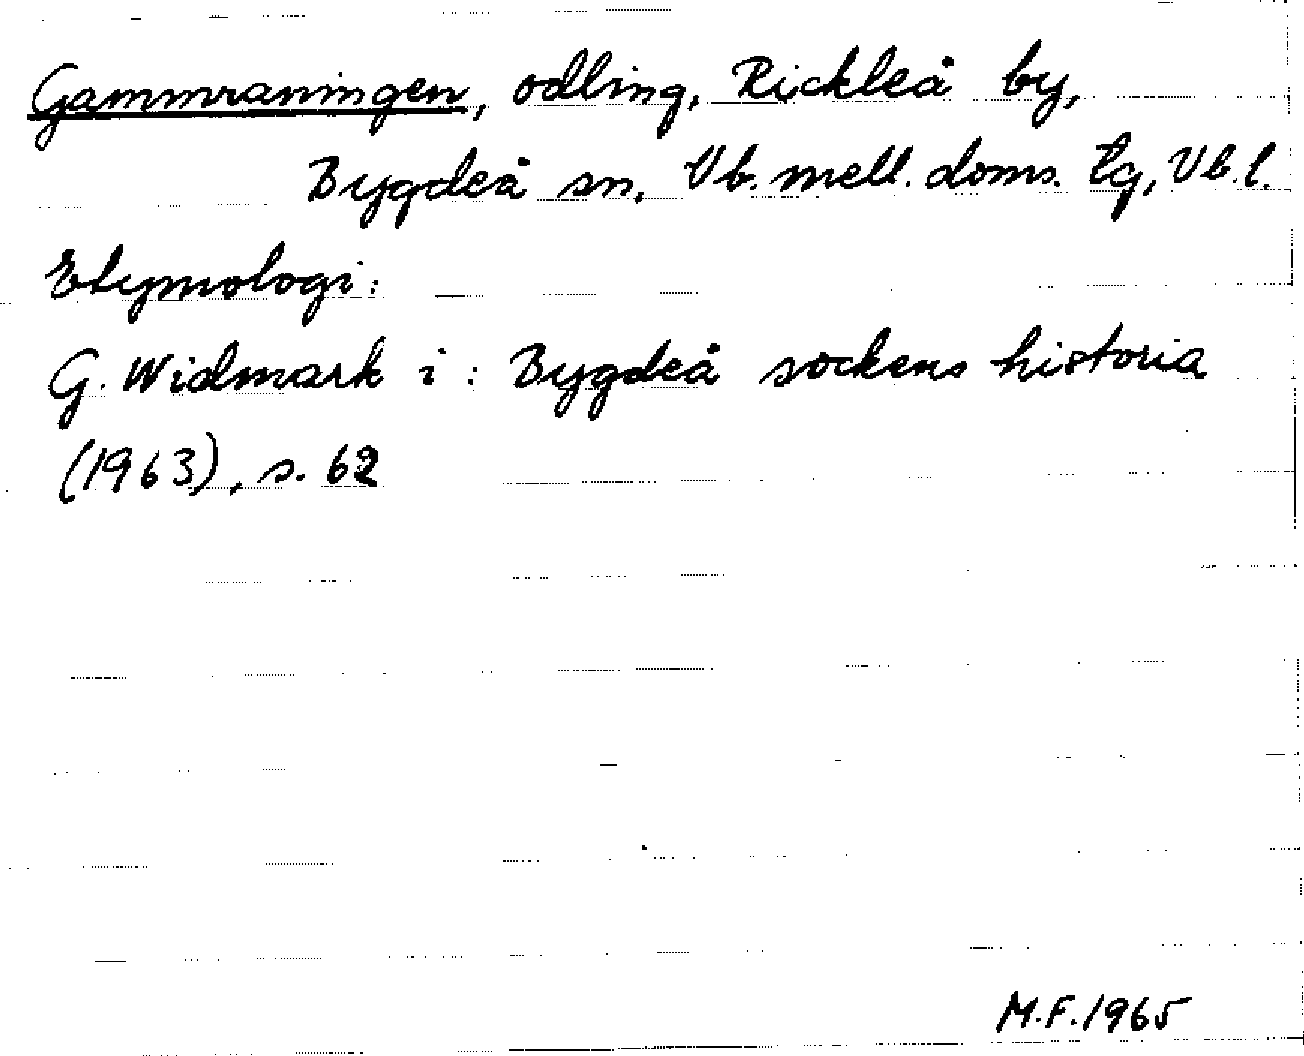 Gammraningen, odling, Rickleå by,
Bygdeå sn, Vb. mell. doms. tg, Vb.l.
Etymologi:
G. Widmark i: Bygdeå sockens historia
(1963), s. 62
M.F. 1965